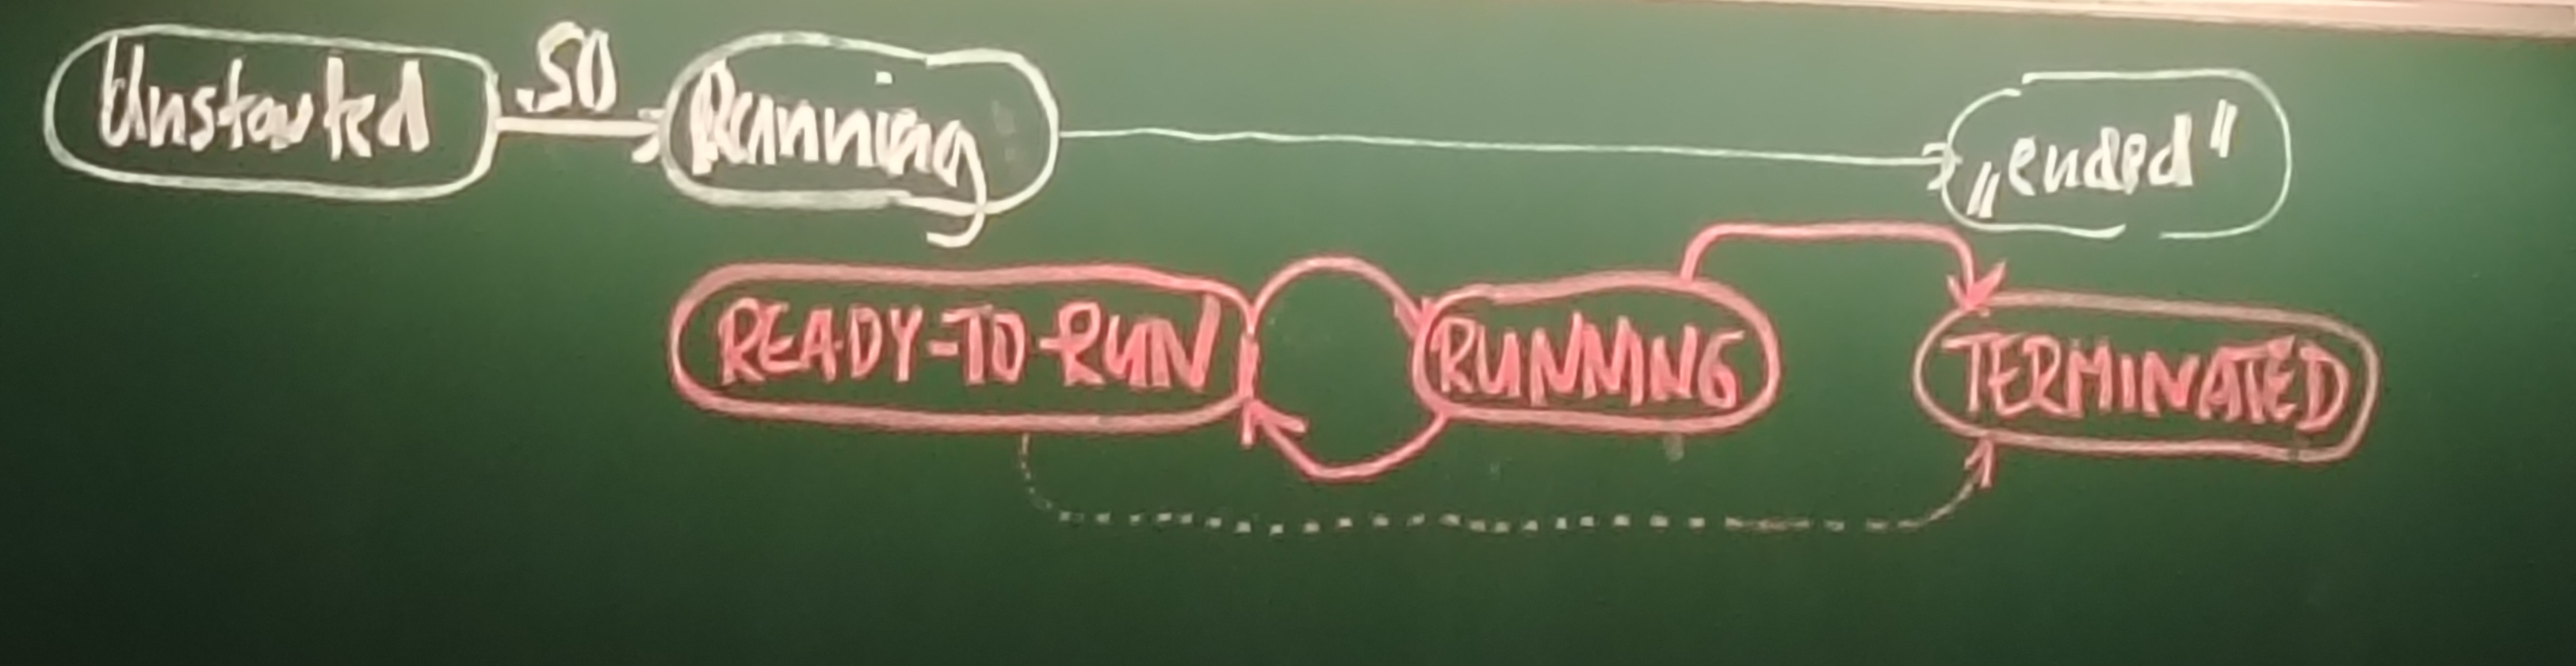 Unstarted .S() Running „ended"
READY-TO-RUN RUNNING TERMINATED